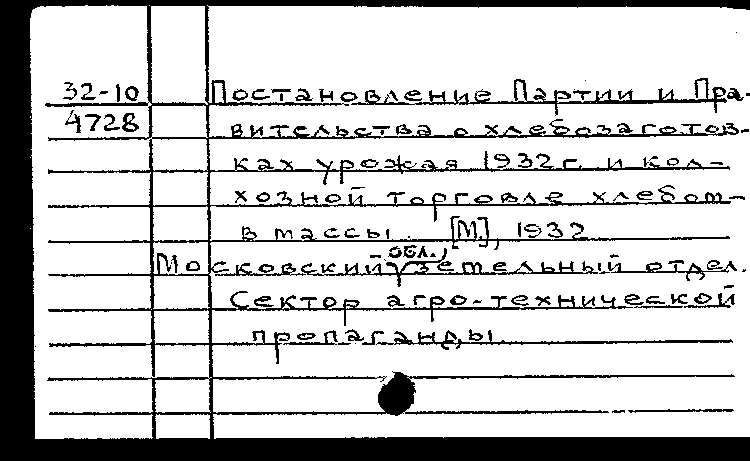 32-10 Постановление Партии и Пра-
4728 вительства о хлебозаготов-
ках урожая 1932 г. и кол-
хозной торговле хлебом –
в массы. [М], 1932
обл.,
Московский земельный отдел.
Сектор агро-технической
пропаганды.